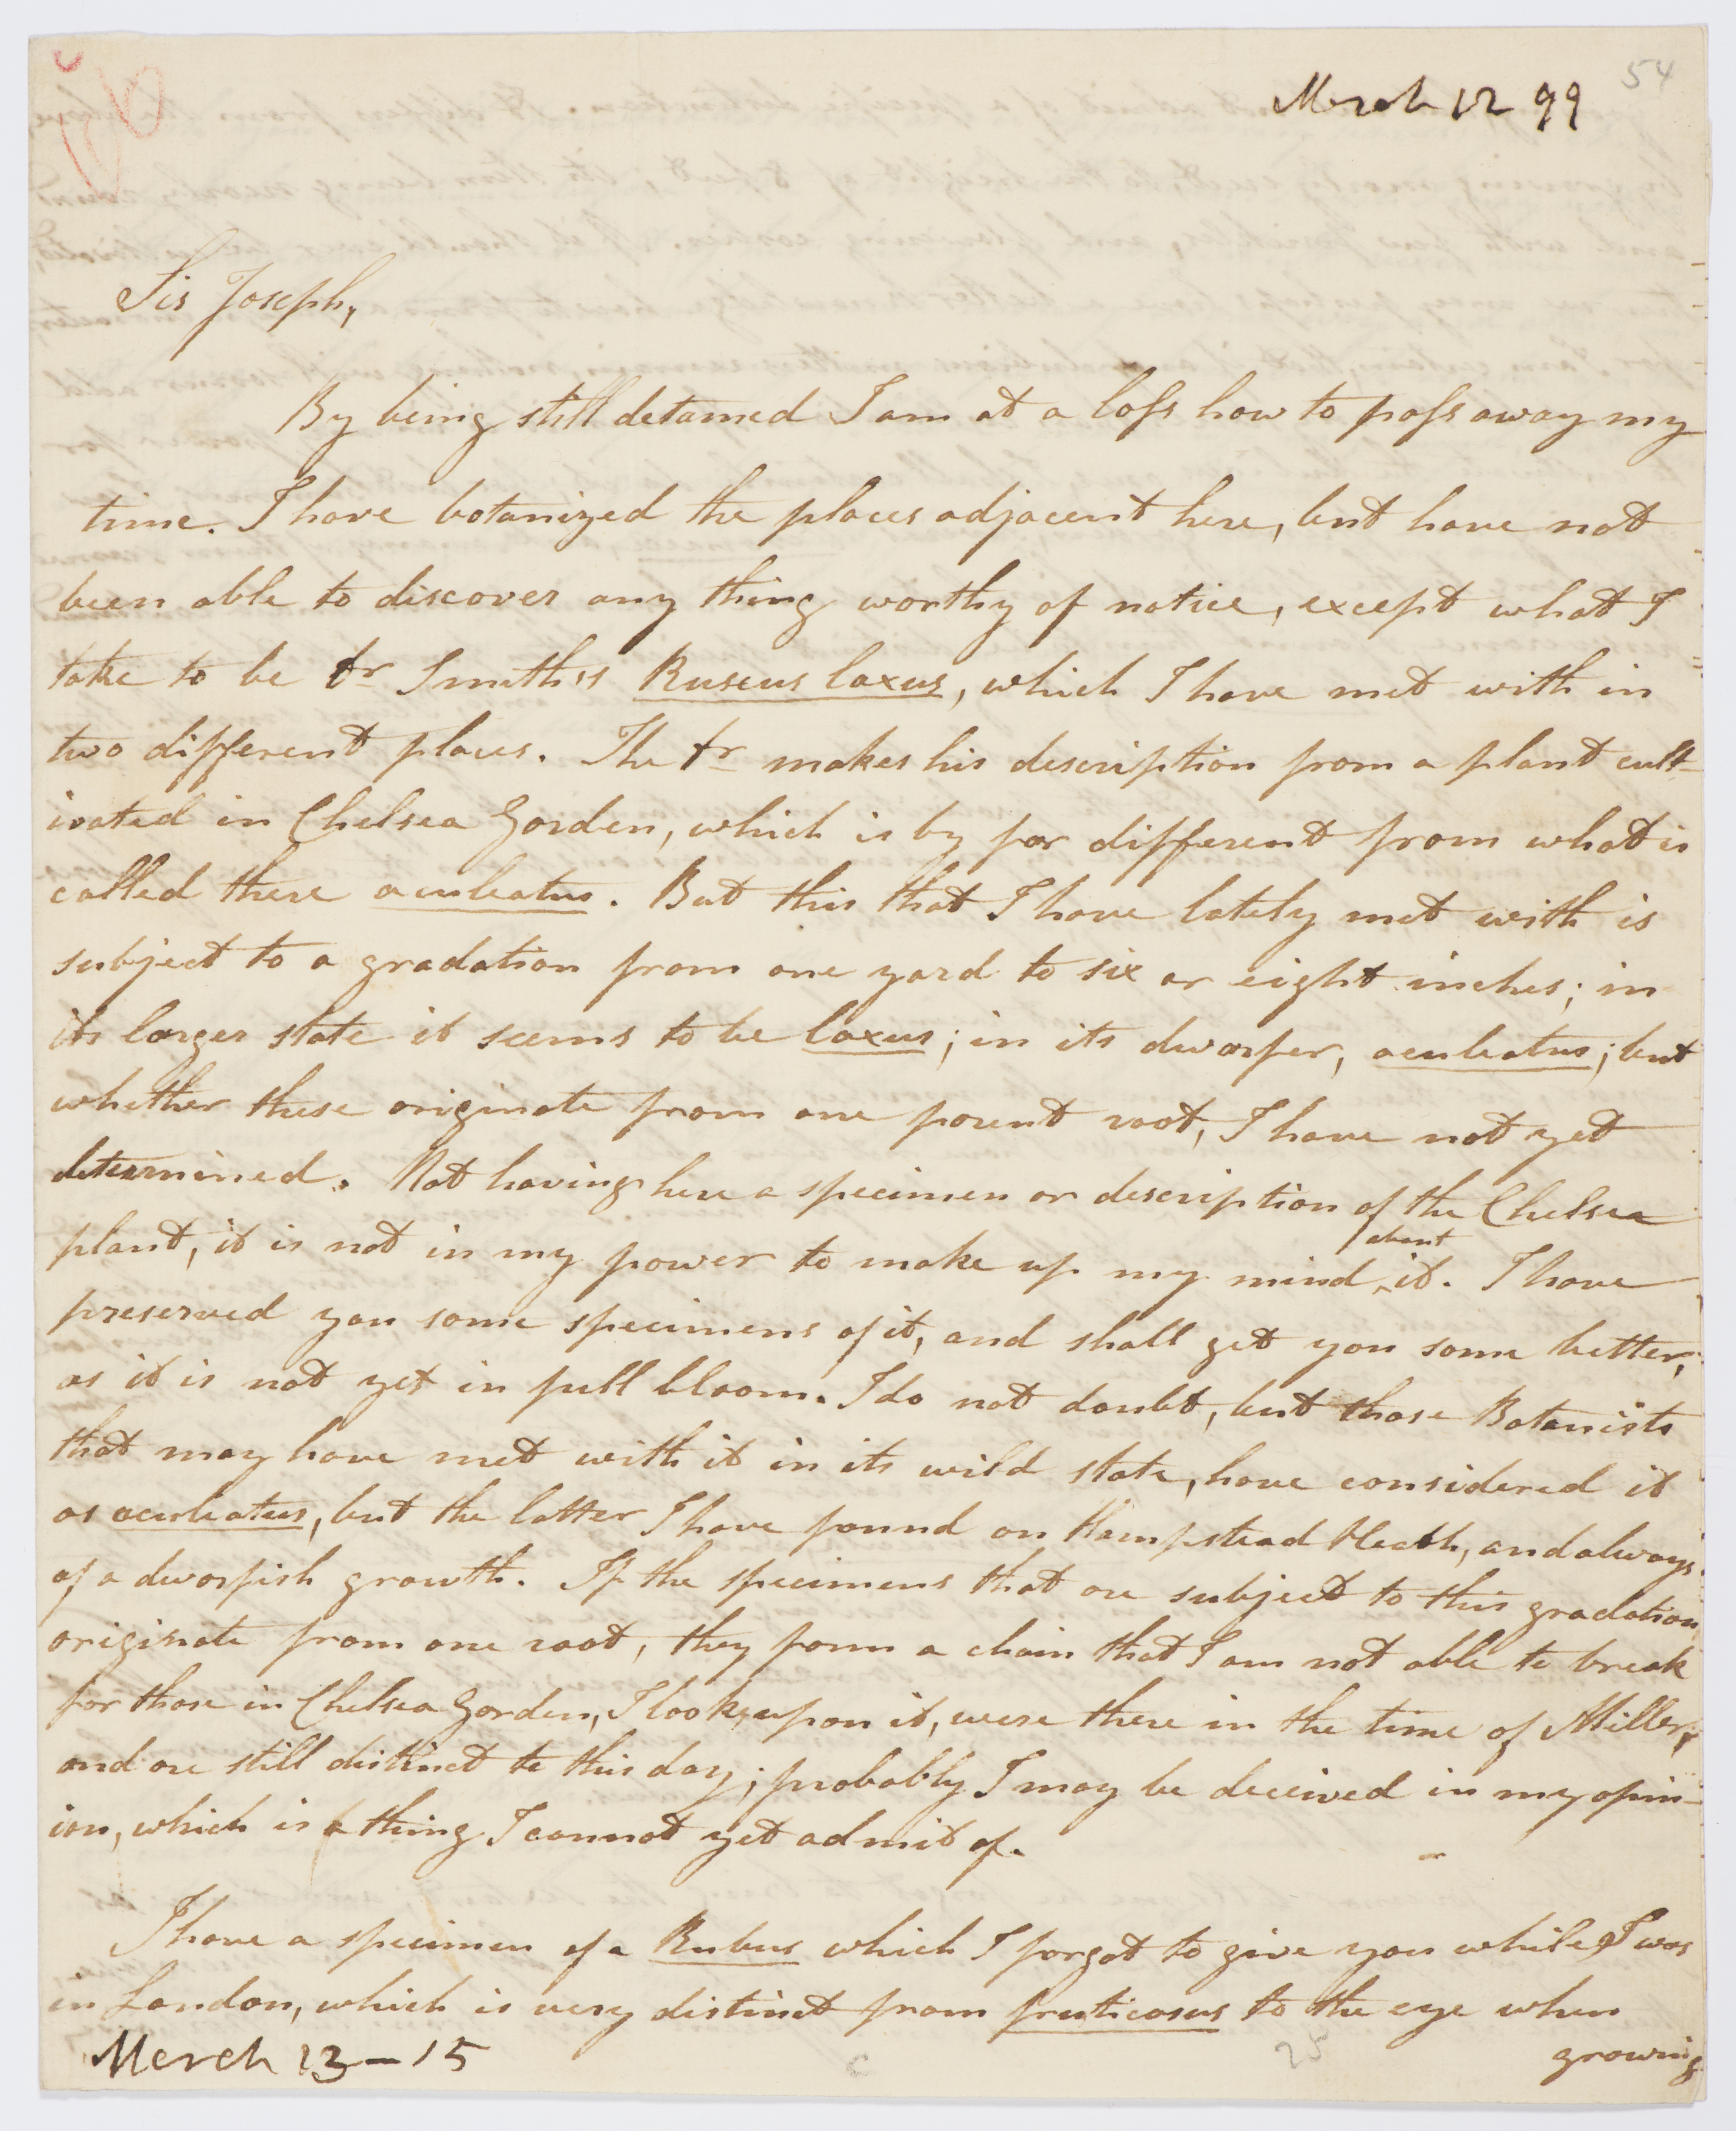 54
March 12 99
Sir Joseph,
By being still detained I am at a loss how to pass away my
time. I have botanized the places adjacent here, but have not
been able to discover any thing worthy of notice, except what I
take to be Dr Smith's Ruscus laxus, which I have met with in
two different places. The Dr makes his description from a plant cult-
ivated in Chelsea Garden, which is by far different from what is
called there aculeatus. But this that I have lately met with is
subject to a gradation from one yard to six or eight inches; in
its larger state it seems to be laxus; in its dwarfer, aculeatus; but
whether these originate from one parent root, I have not yet
determined. Not having here a specimen or description of the Chelsea
plant, it is not in my power to make up my mind about it. I have
preserved you some specimens of it, and shall get you some better,
as it is not yet in full bloom. I do not doubt, but those Botanists
that may have met with it in its wild state, have considered it
as aculeatus, but the latter I have found on Hampstead Heath, and always
of a dwarfish growth. If the specimens that are subject to this gradation
originate from one root, they form a chain that I am not able to break
for those in Chelsea Garden, I look upon it, were there in the time of Miller,
and are still distinct to this day; probably I may be deceived in my opin-
ion, which is a thing I cannot yet admit of.
I have a specimen of a Rubus which I forgot to give you while I was
in London, which is very distinct from fruticosus to the eye when
growing
March 13-15
25